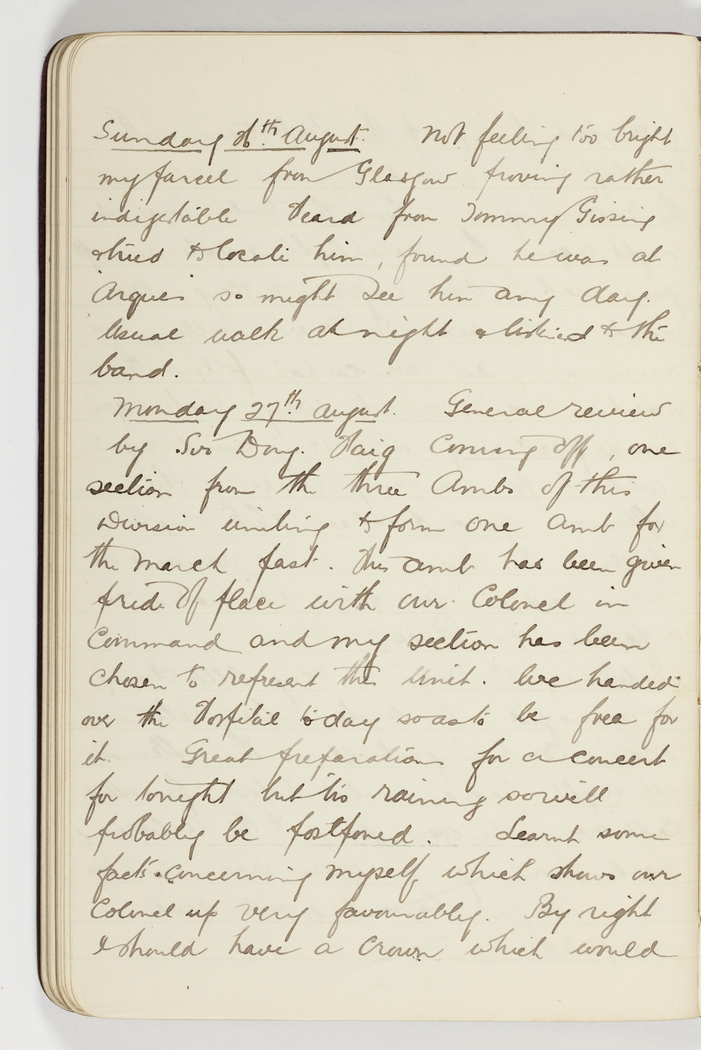 Sunday 26th August. Not feeling too bright
my parcel from Glasgow proving rather
indigestible Heard from Tommy Gissing
& tried to locate him, found he was at
Arques so might see him any day.
Usual walk at night & listened to the
band.
Monday 27th August. General review
by Sir Doug. Haig coming off, one
section from the three Ambs of this
Division uniting to form one Amb for
the March past. This amb has been given
pride of place with our Colonel in
Command and my section has been
chosen to represent this Unit. We handed
over the Hospital today so as to be free for
it. Great preparations for a concert
for tonight but tis raining so will
probably be postponed. Learnt some
facts concerning myself, which shows our
Colonel up very favourably. By right
I should have a Crown which would